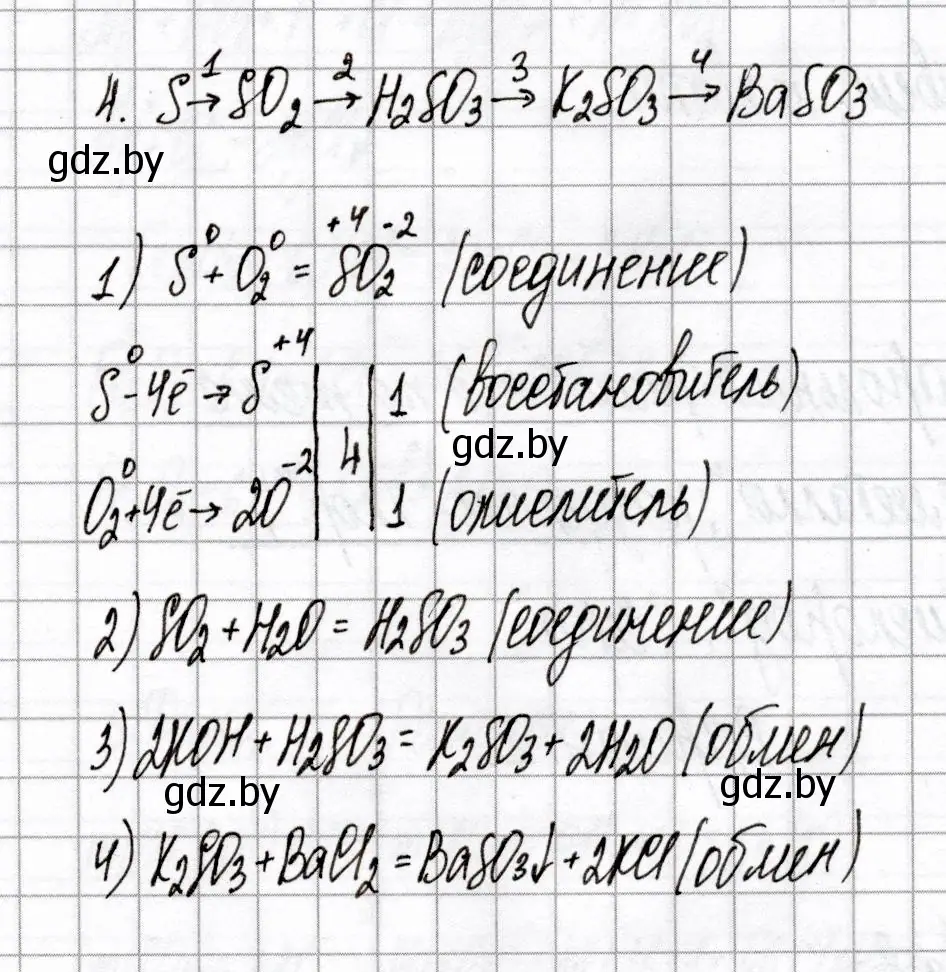 4. S →¹ SO₂ →² H₂SO₃ →³ K₂SO₃ →⁴ BaSO₃
gdz.by
1) S⁰ + O₂⁰ = S⁺⁴O₂⁻² (соединение)
S⁰ - 4ē → S⁺⁴ | | 1 (восстановитель)
gdz.by
4
O₂⁰ + 4ē → 2O⁻² | | 1 (окислитель)
2) SO₂ + H₂O = H₂SO₃ (соединение)
3) 2KOH + H₂SO₃ = K₂SO₃ + 2H₂O (обмен)
gdz.by gdz.by
4) K₂SO₃ + BaCl₂ = BaSO₃↓ + 2KCl (обмен)